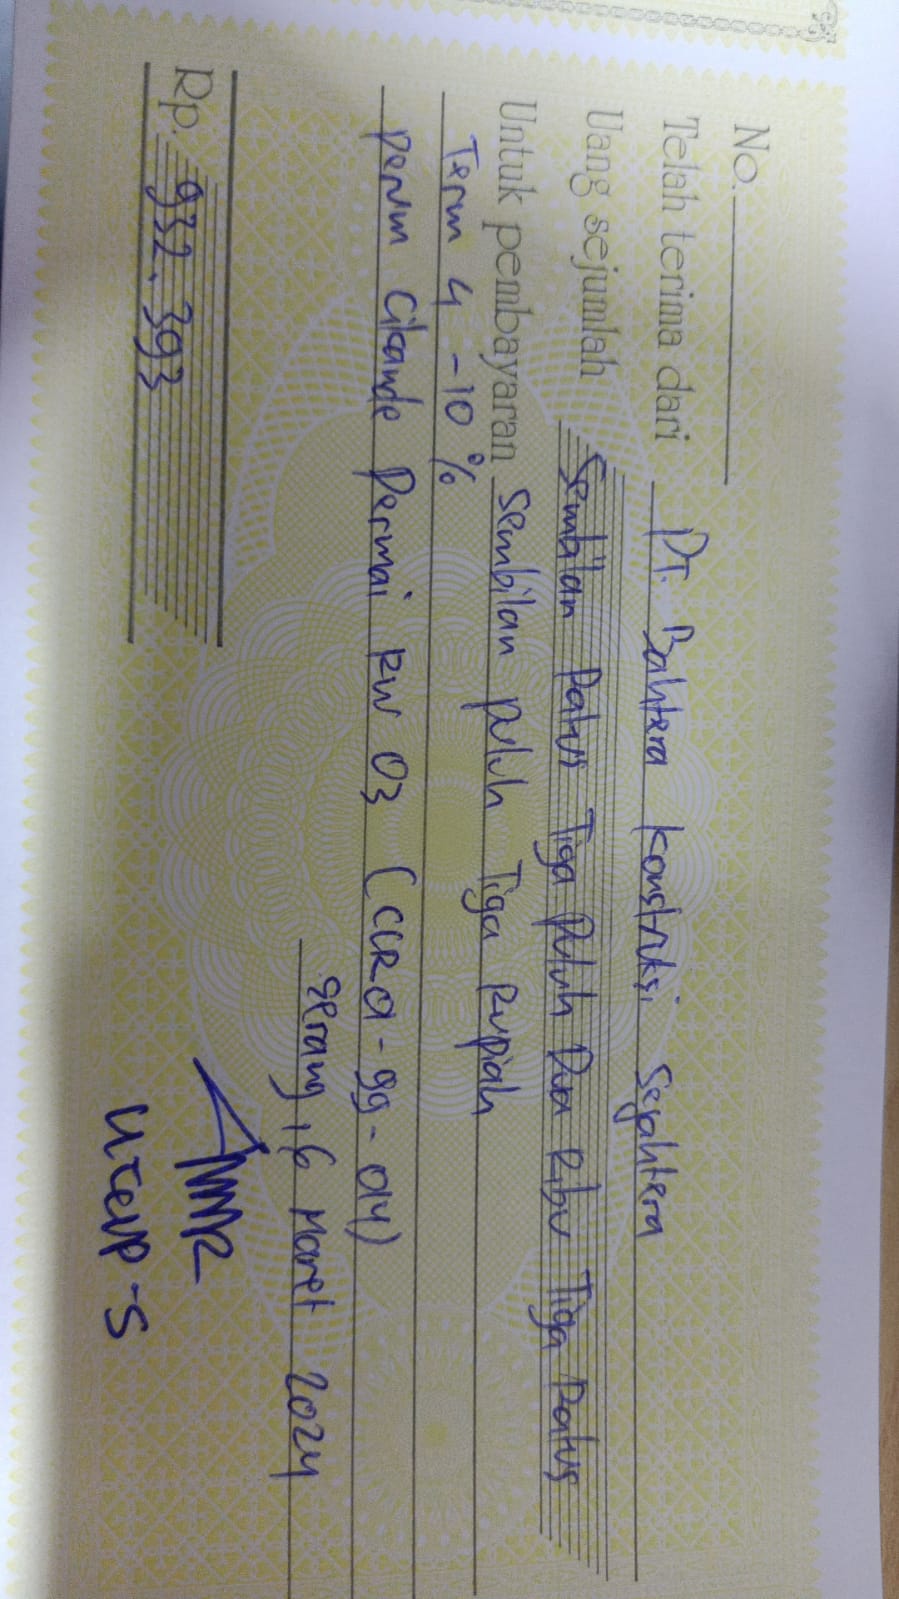 No.
Telah terima dari PT. Bahtera Konstruksi Sejahtera
Uang sejumlah Sembilan Ratus Tiga Puluh Dua Ribu Tiga Ratus
Untuk pembayaran Sembilan puluh Tiga Rupiah
Term 4 - 10 %
perum Cikande Permai RW 03 (CCRA-99-014)
Serang, 6 Maret 2024
Rp. 932.393
UTEUP-S